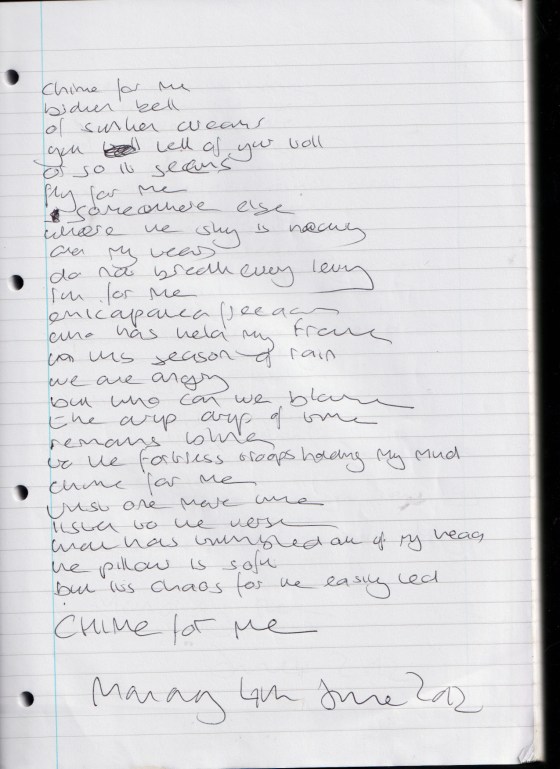 Chime for me
broken bell
of sunken dreams
you tell of your toll
or so it seems
fly for me
somewhere else
where the sky is
and my
do not break every
run for me
who has held my frame
in this season of rain
we are angry
but who can we blame
the drip drip of time
remains
to the fortress troops holding my mind
chime for me
just one more time
listen to the verse
that has tumbled out of my head
the pillow is soft
but its chaos for the easily led
CHIME for me
Monday 4th June 2012